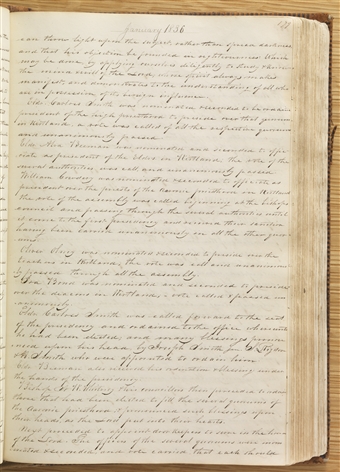 January 1836
can throw light upon the subject rather than spread darkness
and that his objection be founded in righteousness which
may be done by applying ourselves diligently to study
the mind and will of the Lord, whose spirit always makes
manifest and demonstrates to the understanding of all who
are in possession of its
Elder Carlos Smith was nominated & seconded to be
president of the high priesthood to preside over that quorum
in Kirtland, a vote was called of all the respective quorums
and unanimously passed
Elder Alva Beeman was nominated and seconded to offici
ate as president of the Elders in Kirtland the vote of the
several authorities was call and unanimously passed
William Cowdery was nominated & seconded to officiate as
president over the priests of the Aaronic priesthood in Kirtland
the vote of the assembly was called beginning at the bishops
council and passing through the several authorities until
it come to the presidency and received their sanction
having been carried unanimously in all the other quor
ums
Oliver Olney was nominated & seconded to preside over the
teachers in Kirtland, the vote was call and unanimous
ly passed through all the assembly
Ira Bond was nominated and seconded to preside
over the deacons in Kirtland, a vote called & passed un
animously
Elder Carlos Smith was called forward to the seat
of the presidency and ordained to the office whereunto
he had been elected and many blessings pronou
nced upon his head by Joseph Smith Jr. S. Rigdon
& H. Smith who were appointed to ordain him
Elder Beeman also received his ordination & blessing under
the hands of the presidency
Bishop N. K. Whitney & his counsellors then proceeded to ordain
those that had been elected to fill the several quorums of
the Aaronic priesthood & pronounced such blessings upon
their heads as the Lord put into their hearts
Next proceeded to appoint doorkeepers to serve in the house
of the Lord. The officers of the several quorums were nom
inated & seconded and vote carried that each should